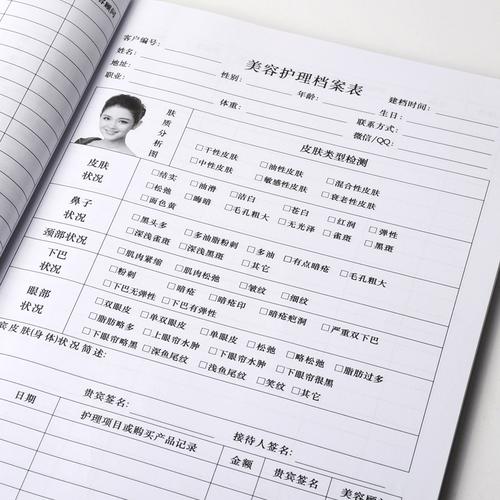 美容护理档案表
客户编号: 建档时间:
姓名: 性别: 年龄: 生日:
地址: 联系方式:
职业: 体重: 微信/QQ:
肤质分析图
皮肤类型检测
□干性皮肤 □油性皮肤 □混合性皮肤
□中性皮肤 □敏感性皮肤 □衰老性皮肤
皮肤状况
□结实 □油滑 □洁白 □苍白 □红润 □弹性
□松弛 □晦暗 □毛孔粗大 □无光泽 □雀斑 □黑斑
□面色黄
鼻子状况
□黑头多 □多油脂粉刺 □多油 □有点暗疮 □毛孔粗大
□深浅雀斑 □深浅黑斑 □其它
颈部状况
□肌肉紧缩 □肌肉松弛 □皱纹 □细纹
下巴状况
□粉刺 □暗疮 □暗疮印 □暗疮疤洞 □严重双下巴
□下巴无弹性 □下巴有弹性
眼部状况
□双眼皮 □单双眼皮 □单眼皮 □松弛 □略松弛 □脂肪过多
□脂肪略多 □上眼帘水肿 □下眼帘水肿 □下眼帘很黑
□下眼帘略黑 □深鱼尾纹 □浅鱼尾纹 □笑纹 □其它
宾皮肤(身体)状况简述:
贵宾签名: 接待人签名:
日期 护理项目或购买产品记录 金额 贵宾签名 美容顾